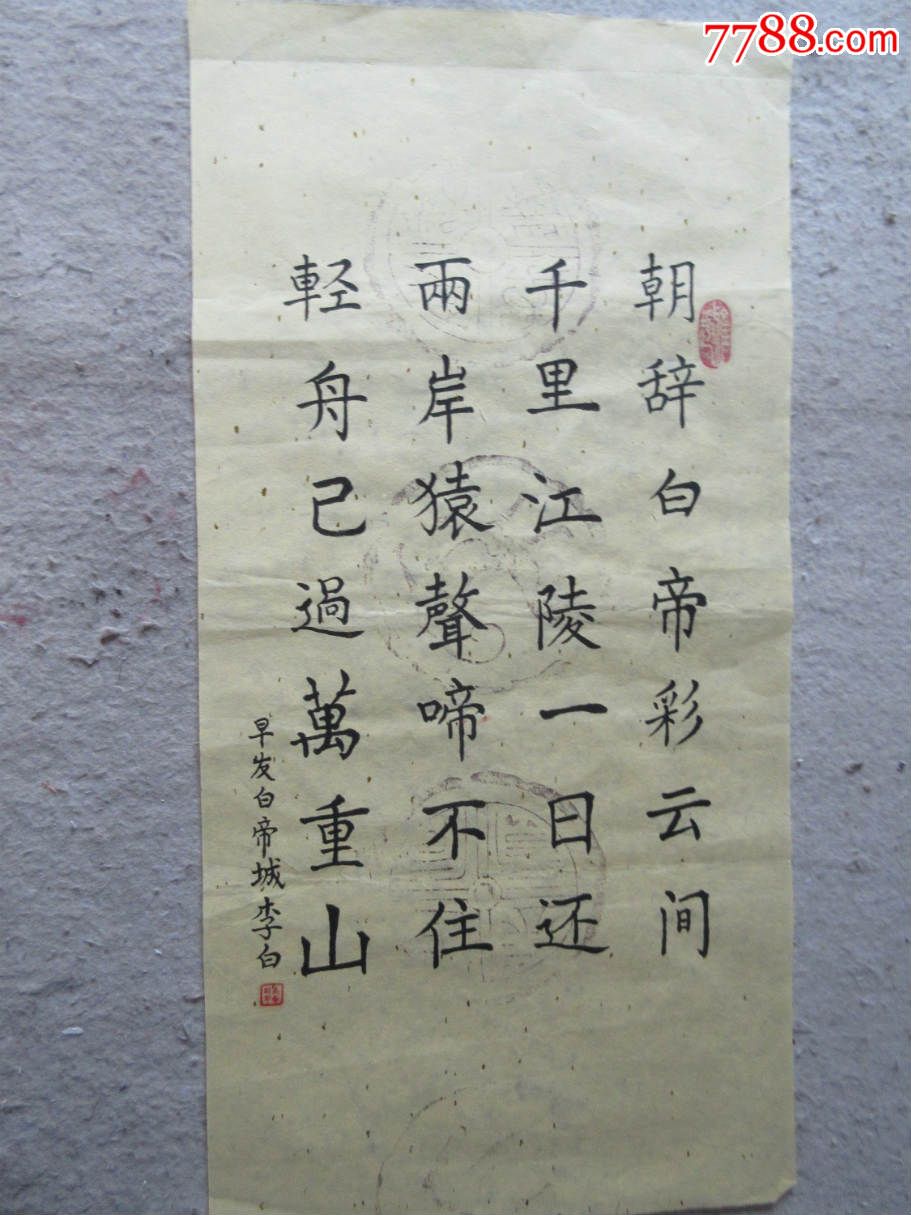 7788.com
朝辞白帝彩云间
千里江陵一日还
兩岸猿聲啼不住
軽舟已過萬重山
早发白帝城李白